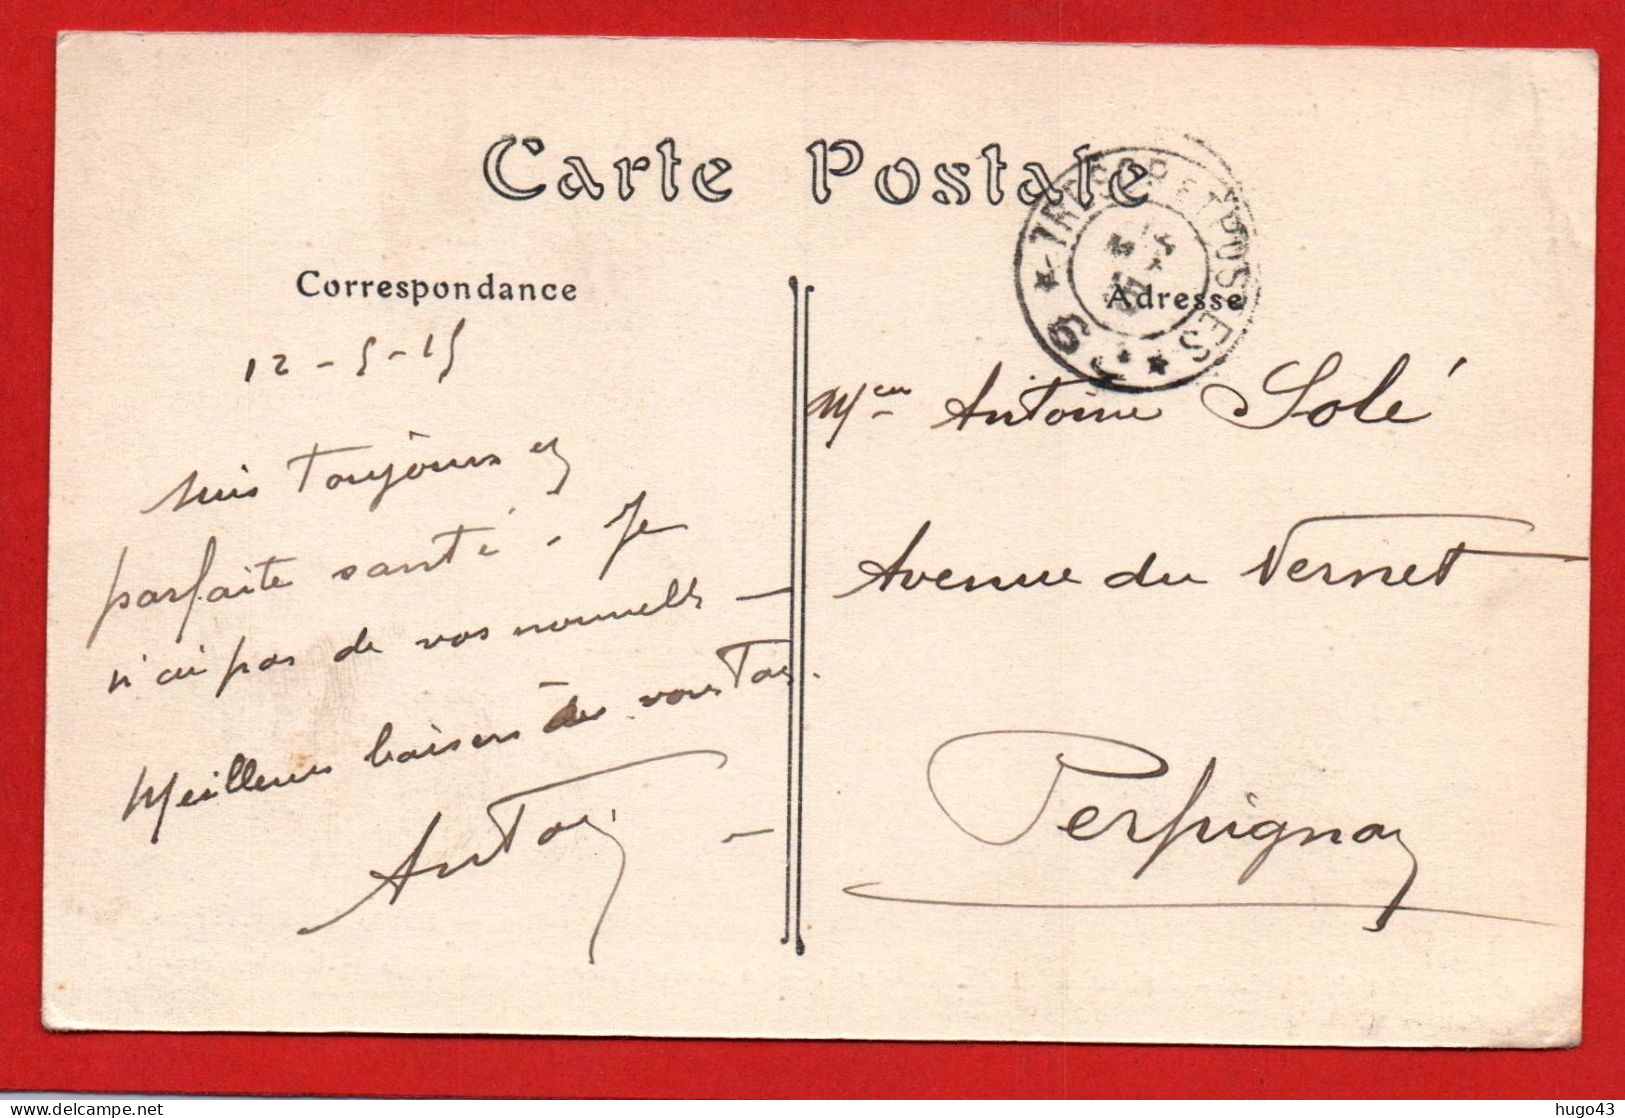 Carte Postale
Correspondance
12-5-15
suis toujours en
parfaite santé. Je
n'ai pas de vos nouvelles -
Meilleurs baisers à vous tous.
Anton
TRESOR ET POSTES
* *
Adresse
Antoine Solé
Avenue du Vernet
Perpignan
hugo43